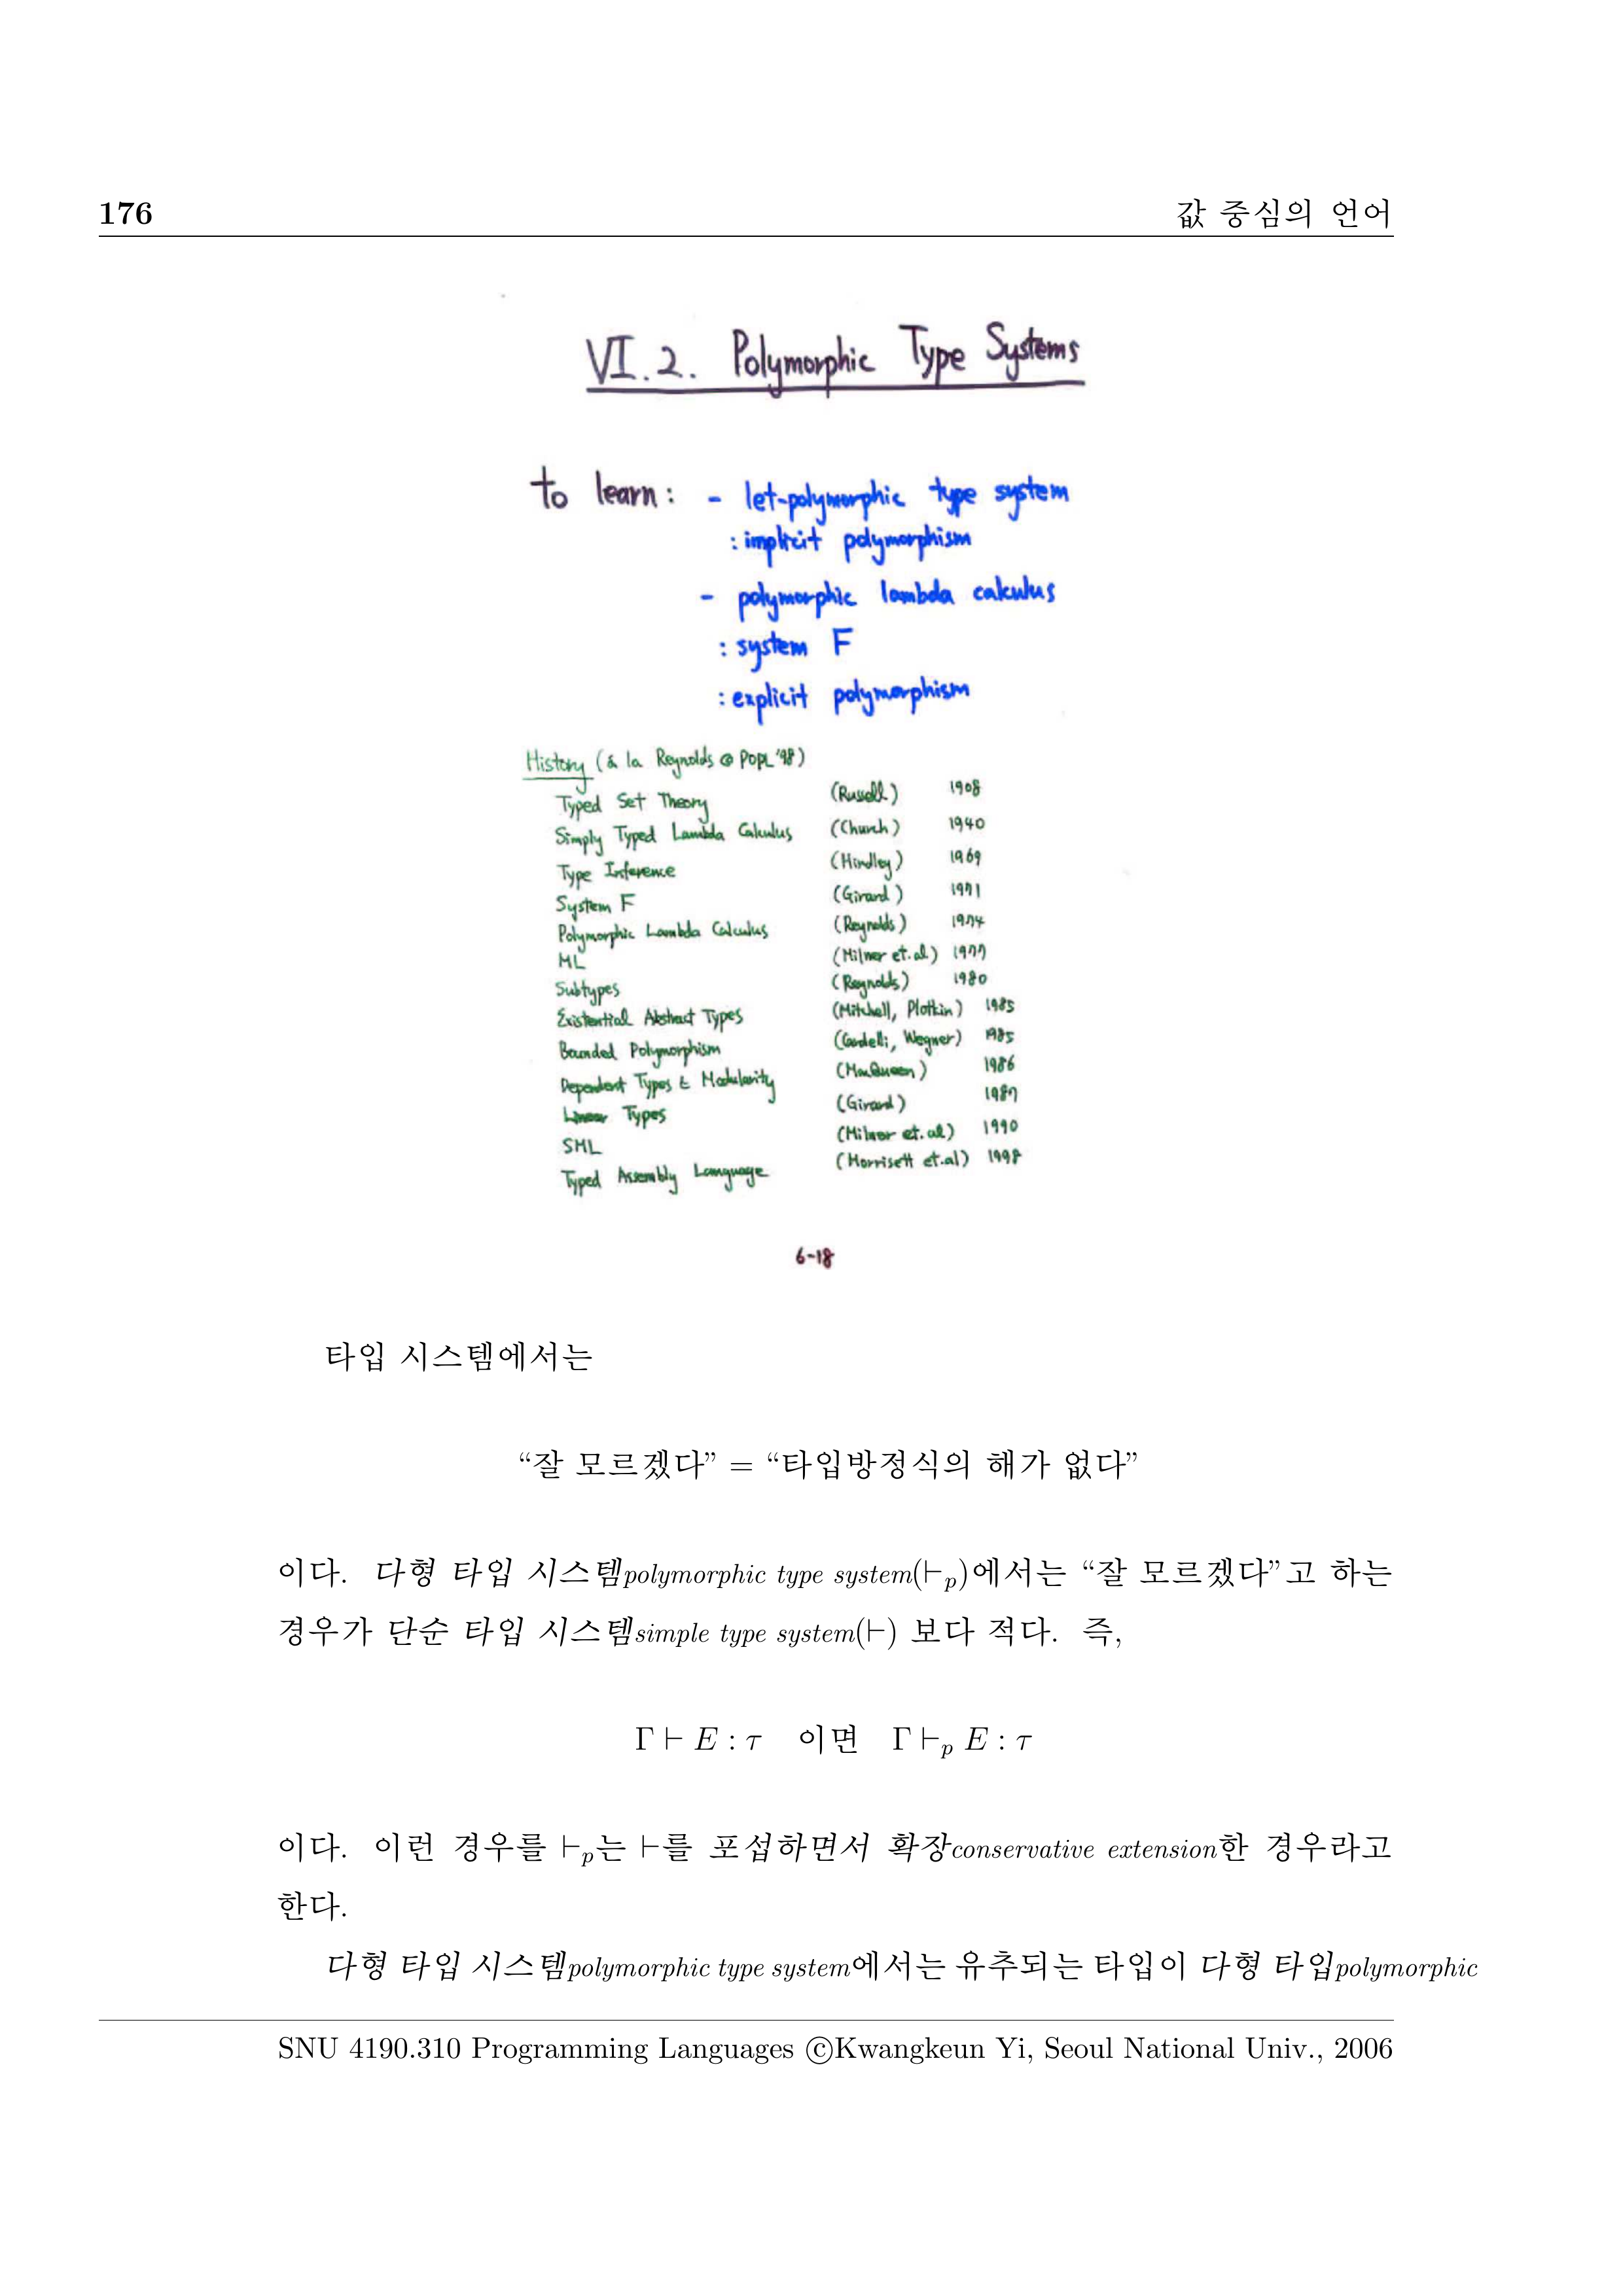 176 값 중심의 언어
VI.2. Polymorphic Type Systems
to learn: - let-polymorphic type system
: implicit polymorphism
- polymorphic lambda calculus
: system F
: explicit polymorphism
History (à la Reynolds @ POPL '98)
Typed Set Theory (Russell) 1908
Simply Typed Lambda Calculus (Church) 1940
Type Inference (Hindley) 1969
System F (Girard) 1971
Polymorphic Lambda Calculus (Reynolds) 1974
ML (Milner et.al) 1977
Subtypes (Reynolds) 1980
Existential Abstract Types (Mitchell, Plotkin) 1985
Bounded Polymorphism (Cardelli, Wegner) 1985
Dependent Types & Modularity (MacQueen) 1986
Linear Types (Girard) 1987
SML (Milner et.al) 1990
Typed Assembly Language (Morrisett et.al) 1998
6-18
타입 시스템에서는
“잘 모르겠다” = “타입방정식의 해가 없다”
이다. 다형 타입 시스템polymorphic type system(⊢p)에서는 “잘 모르겠다”고 하는
경우가 단순 타입 시스템simple type system(⊢) 보다 적다. 즉,
Γ ⊢ E : τ 이면 Γ ⊢p E : τ
이다. 이런 경우를 ⊢p는 ⊢를 포섭하면서 확장conservative extension한 경우라고
한다.
다형 타입 시스템polymorphic type system에서는 유추되는 타입이 다형 타입polymorphic
SNU 4190.310 Programming Languages ©Kwangkeun Yi, Seoul National Univ., 2006